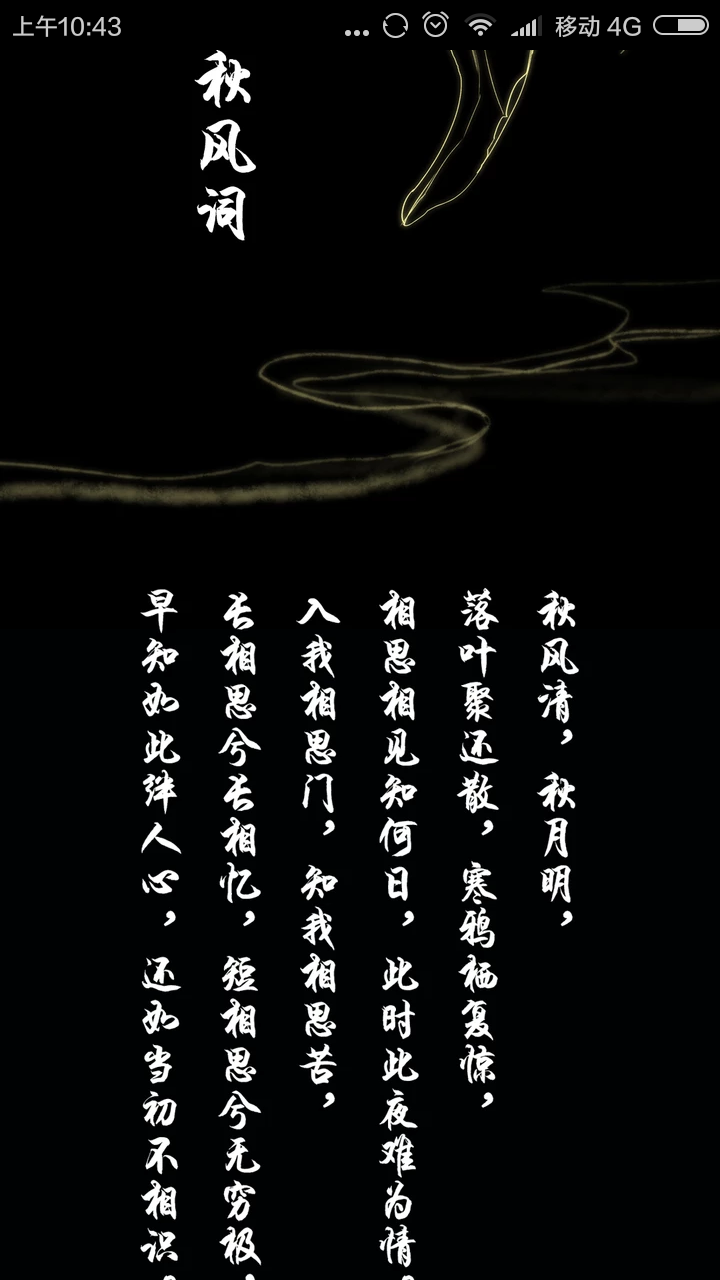 上午10:43 ... 移动 4G
秋风词
秋风清，秋月明，
落叶聚还散，寒鸦栖复惊，
相思相见知何日，此时此夜难为情，
入我相思门，知我相思苦，
长相思兮长相忆，短相思兮无穷极，
早知如此绊人心，还如当初不相识。